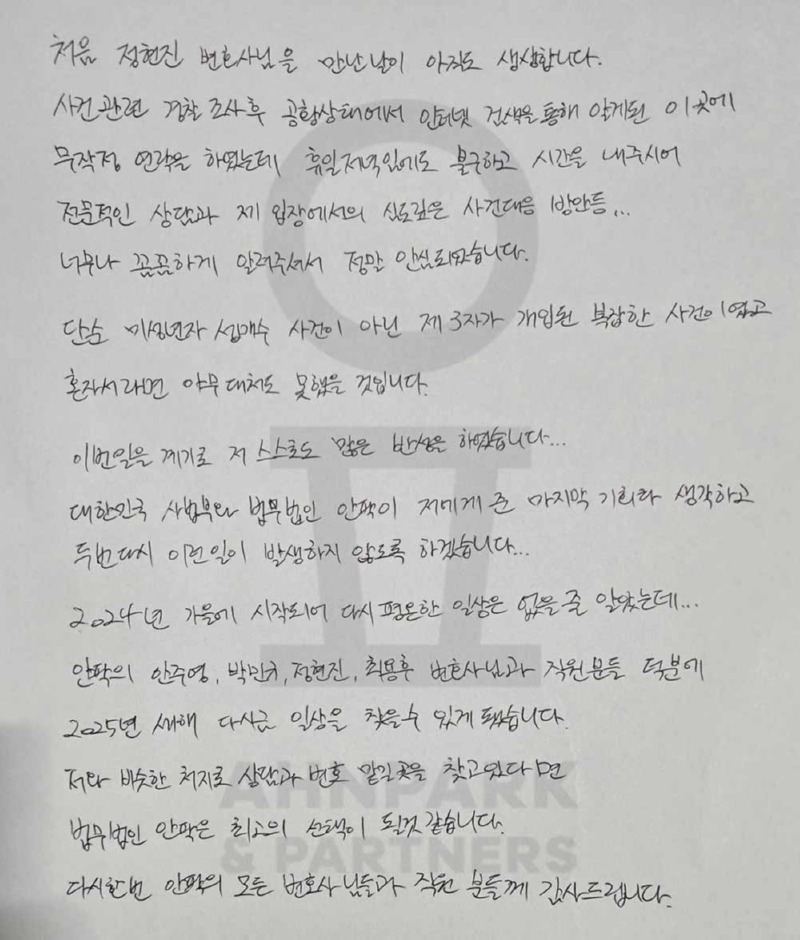 처음 정현진 변호사님을 만난날이 아직도 생생합니다.
사건관련 경찰조사후 공황상태에서 인터넷 검색을 통해 알게된 이곳에
무작정 연락을 하였는데 휴일저녁임에도 불구하고 시간을 내주시어
전문적인 상담과 제 입장에서의 심도깊은 사건대응 방안등...
너무나 꼼꼼하게 알려주셔서 정말 안심되었습니다.
단순 미성년자 성매수 사건이 아닌 제 3자가 개입된 복잡한 사건이였고
혼자서라면 아무 대처도 못했을 것입니다.
이번일을 계기로 저 스스로도 많은 반성을 하였습니다...
대한민국 사법부와 법무법인 안팍이 저에게 준 마지막 기회라 생각하고
두번다시 이런일이 발생하지 않도록 하겠습니다...
2024년 가을에 시작되어 다시 평온한 일상은 없을 줄 알았는데...
안팍의 안주영, 박민규, 정현진, 최용후 변호사님과 직원분들 덕분에
2025년 새해 다시금 일상을 찾을수 있게 됐습니다.
저와 비슷한 처지로 상담과 변호 맡길곳을 찾고있다면
법무법인 안팍은 최고의 선택이 될것 같습니다.
다시한번 안팍의 모든 변호사님들과 직원 분들께 감사드립니다.
AHNPARK
& PARTNERS